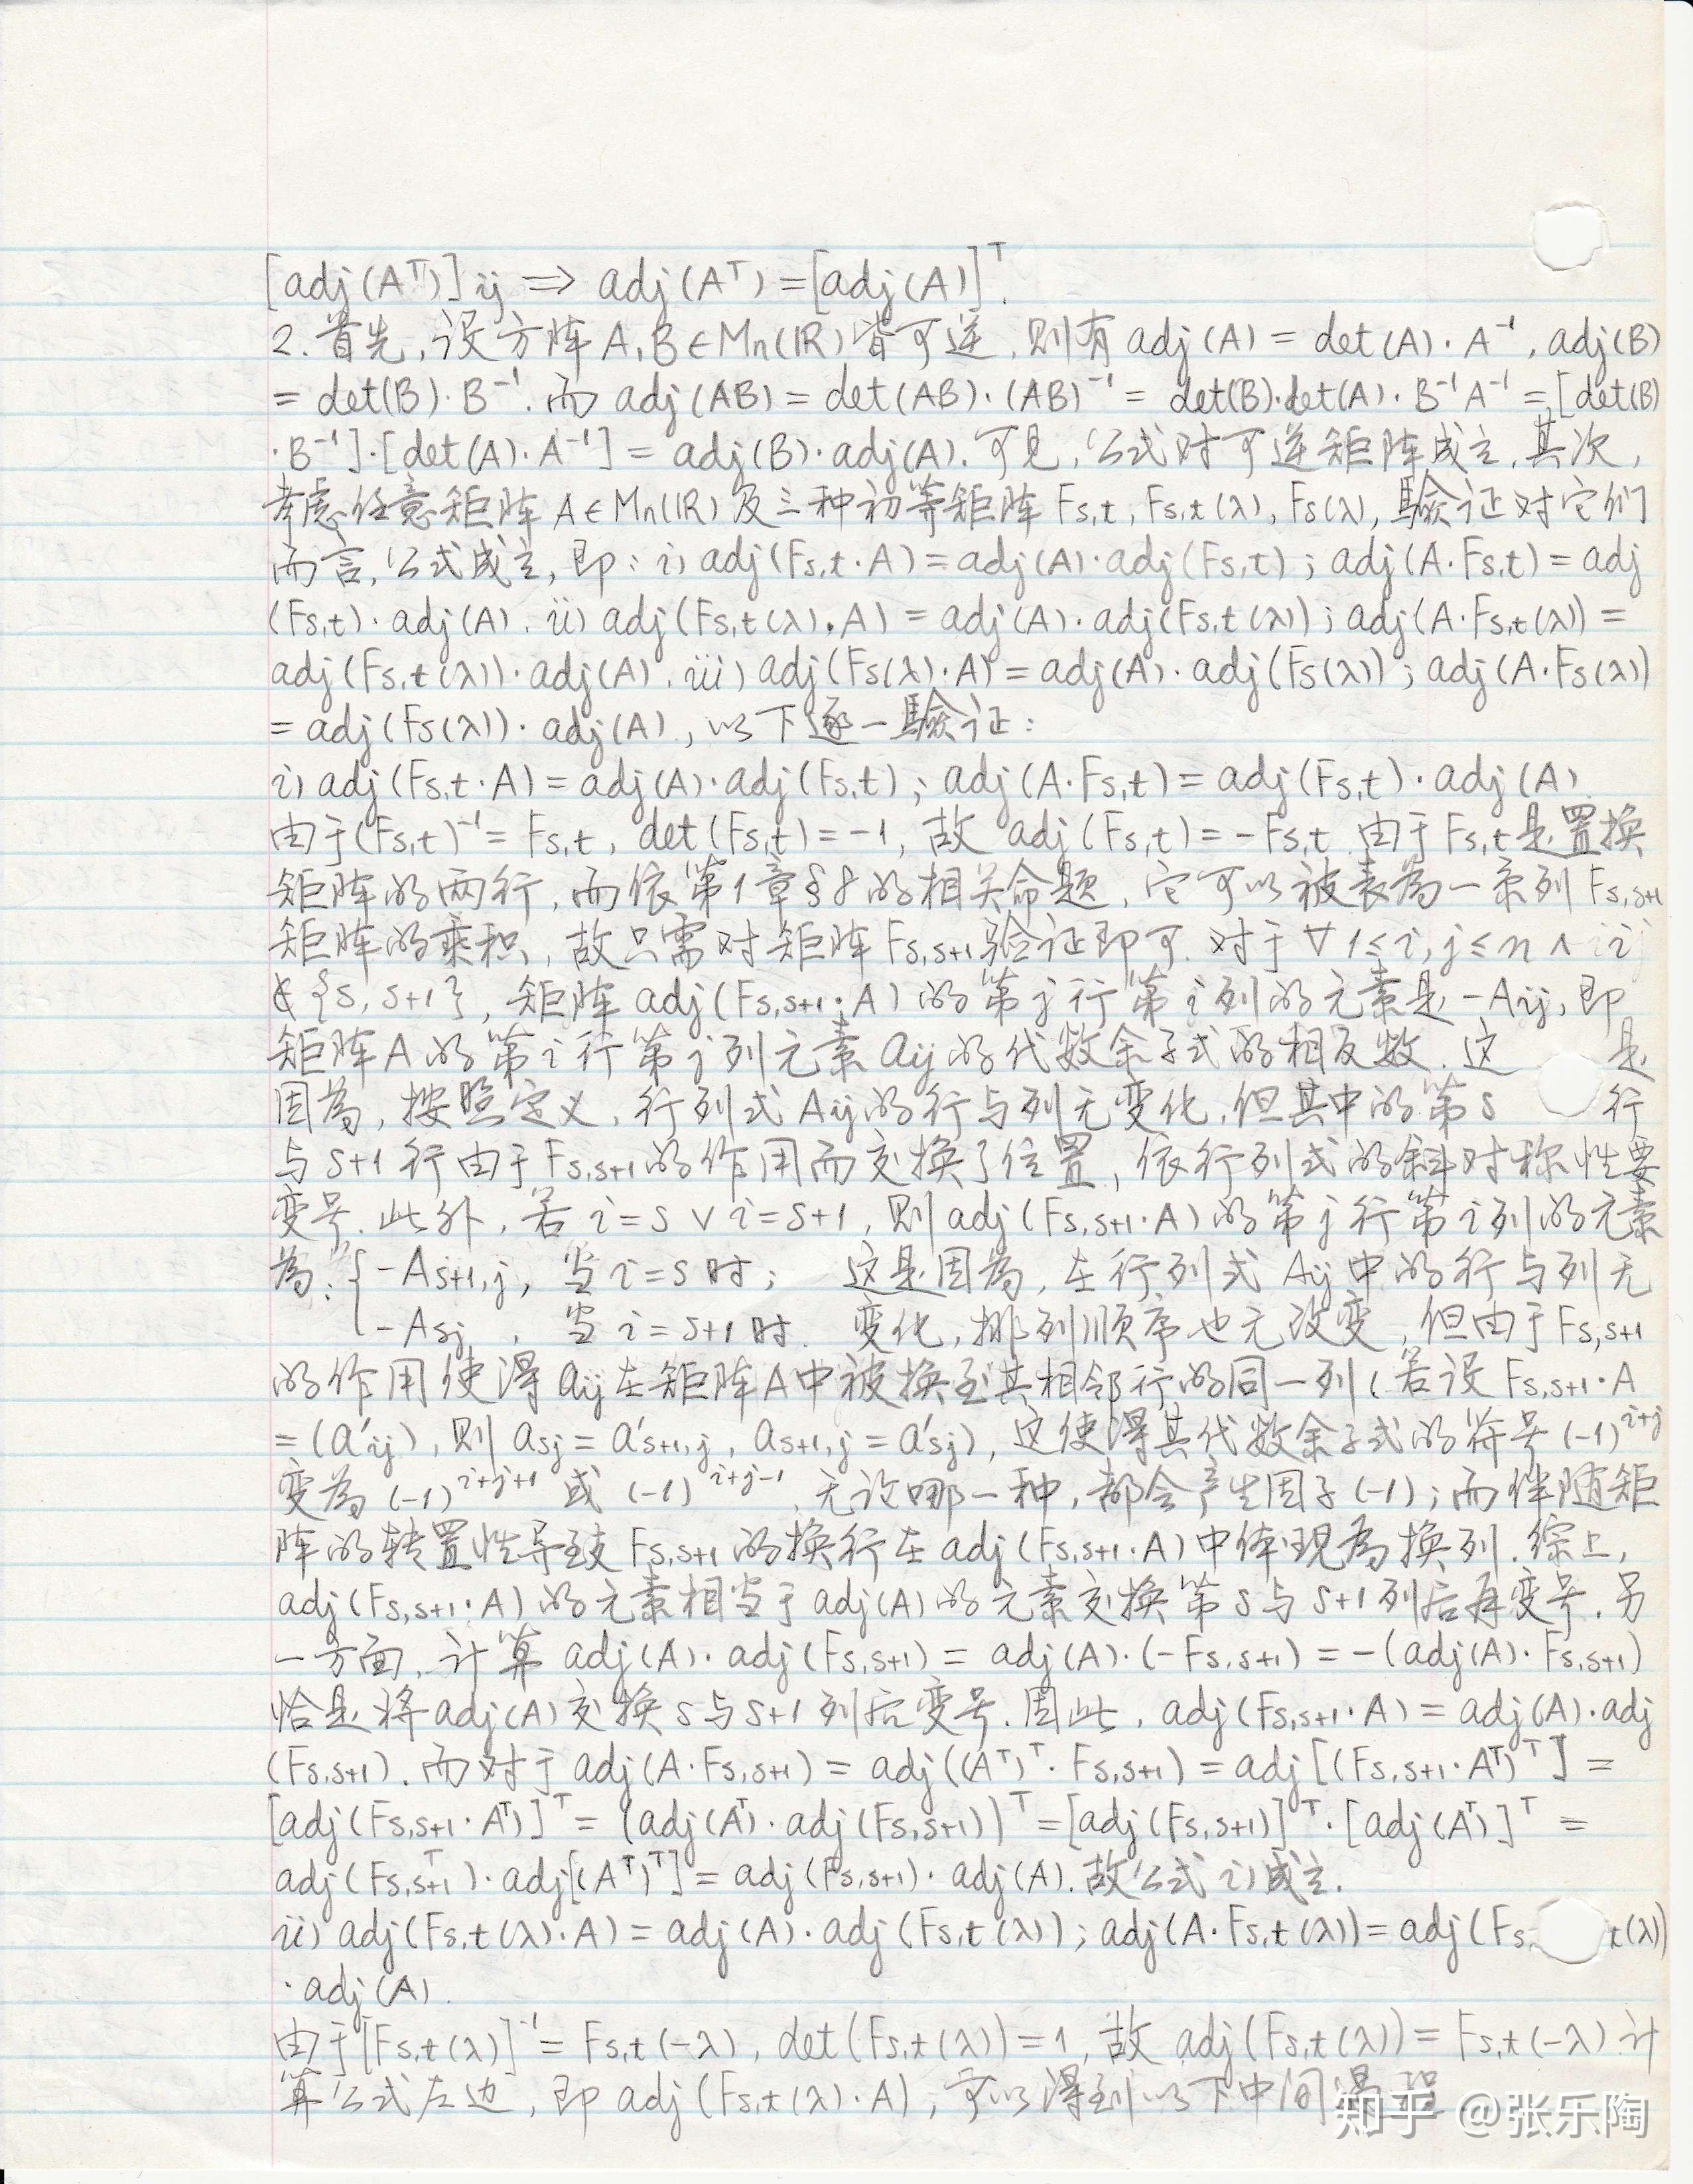 [adj(Aᵀ)]ij ⟹ adj(Aᵀ) = [adj(A)]ᵀ.
2. 首先, 设方阵 A, B ∈ Mn(ℝ) 皆可逆, 则有 adj(A) = det(A)·A⁻¹, adj(B)
= det(B)·B⁻¹. 而 adj(AB) = det(AB)·(AB)⁻¹ = det(B)·det(A)·B⁻¹A⁻¹ = [det(B)
·B⁻¹]·[det(A)·A⁻¹] = adj(B)·adj(A). 可见, 公式对可逆矩阵成立. 其次,
考虑任意矩阵 A ∈ Mn(ℝ) 及三种初等矩阵 Fs,t, Fs,t(λ), Fs(λ), 驗证对它们
而言, 公式成立, 即: i) adj(Fs,t·A) = adj(A)·adj(Fs,t); adj(A·Fs,t) = adj
(Fs,t)·adj(A). ii) adj(Fs,t(λ)·A) = adj(A)·adj(Fs,t(λ)); adj(A·Fs,t(λ)) =
adj(Fs,t(λ))·adj(A). iii) adj(Fs(λ)·A) = adj(A)·adj(Fs(λ)); adj(A·Fs(λ))
= adj(Fs(λ))·adj(A), 以下逐一驗证:
i) adj(Fs,t·A) = adj(A)·adj(Fs,t); adj(A·Fs,t) = adj(Fs,t)·adj(A).
由于(Fs,t)⁻¹ = Fs,t, det(Fs,t) = -1, 故 adj(Fs,t) = -Fs,t. 由于 Fs,t 是置换
矩阵的两行, 而依第1章§8的相关命题, 它可以被表為一系列 Fs,s+1
矩阵的乘积, 故只需对矩阵 Fs,s+1 验证即可. 对于 ∀ 1≤i, j≤n ∧ i
∉ {s, s+1}, 矩阵 adj(Fs,s+1·A) 的第 j 行第 i 列的元素是 -Aij, 即
矩阵A的第 i 行第 j 列元素 aij 的代数余子式的相反数. 这 是
因為, 按照定义, 行列式 Aij 的行与列无变化, 但其中的第 s 行
与 s+1 行由于 Fs,s+1 的作用而交换了位置, 依行列式的斜对称性要
变号. 此外, 若 i=s ∨ i=s+1, 则 adj(Fs,s+1·A) 的第 j 行第 i 列的元素
為: { -As+1,j, 当 i=s 时; 这是因為, 在行列式 Aij 中的行与列无
-Asj, 当 i=s+1 时. 变化, 排列顺序也无改变, 但由于 Fs,s+1
的作用使得 aij 在矩阵A中被换至其相邻行的同一列 (若设 Fs,s+1·A
= (a'ij), 则 asj = a's+1,j, as+1,j = a'sj), 这使得其代数余子式的符号 (-1)ⁱ⁺ʲ
变為 (-1)ⁱ⁺ʲ⁺¹ 或 (-1)ⁱ⁺ʲ⁻¹, 无论哪一种, 都会产生因子 (-1); 而伴随矩
阵的转置性导致 Fs,s+1 的换行在 adj(Fs,s+1·A) 中体现為换列. 综上,
adj(Fs,s+1·A) 的元素相当于 adj(A) 的元素交换第 s 与 s+1 列后再变号. 另
一方面, 计算 adj(A)·adj(Fs,s+1) = adj(A)·(-Fs,s+1) = -(adj(A)·Fs,s+1)
恰是将 adj(A) 交换 s 与 s+1 列后变号. 因此, adj(Fs,s+1·A) = adj(A)·adj
(Fs,s+1). 而对于 adj(A·Fs,s+1) = adj((Aᵀ)ᵀ·Fs,s+1) = adj[(Fs,s+1·Aᵀ)ᵀ] =
[adj(Fs,s+1·Aᵀ)]ᵀ = (adj(Aᵀ)·adj(Fs,s+1))ᵀ = [adj(Fs,s+1)]ᵀ·[adj(Aᵀ)]ᵀ =
adj(Fs,s+1ᵀ)·adj[(Aᵀ)ᵀ] = adj(Fs,s+1)·adj(A). 故公式 i) 成立.
ii) adj(Fs,t(λ)·A) = adj(A)·adj(Fs,t(λ)); adj(A·Fs,t(λ)) = adj(Fs,t(λ))
·adj(A).
由于[Fs,t(λ)]⁻¹ = Fs,t(-λ), det(Fs,t(λ)) = 1, 故 adj(Fs,t(λ)) = Fs,t(-λ). 计
算公式左边, 即 adj(Fs,t(λ)·A), 可以得到以下中间
知乎 @张乐陶